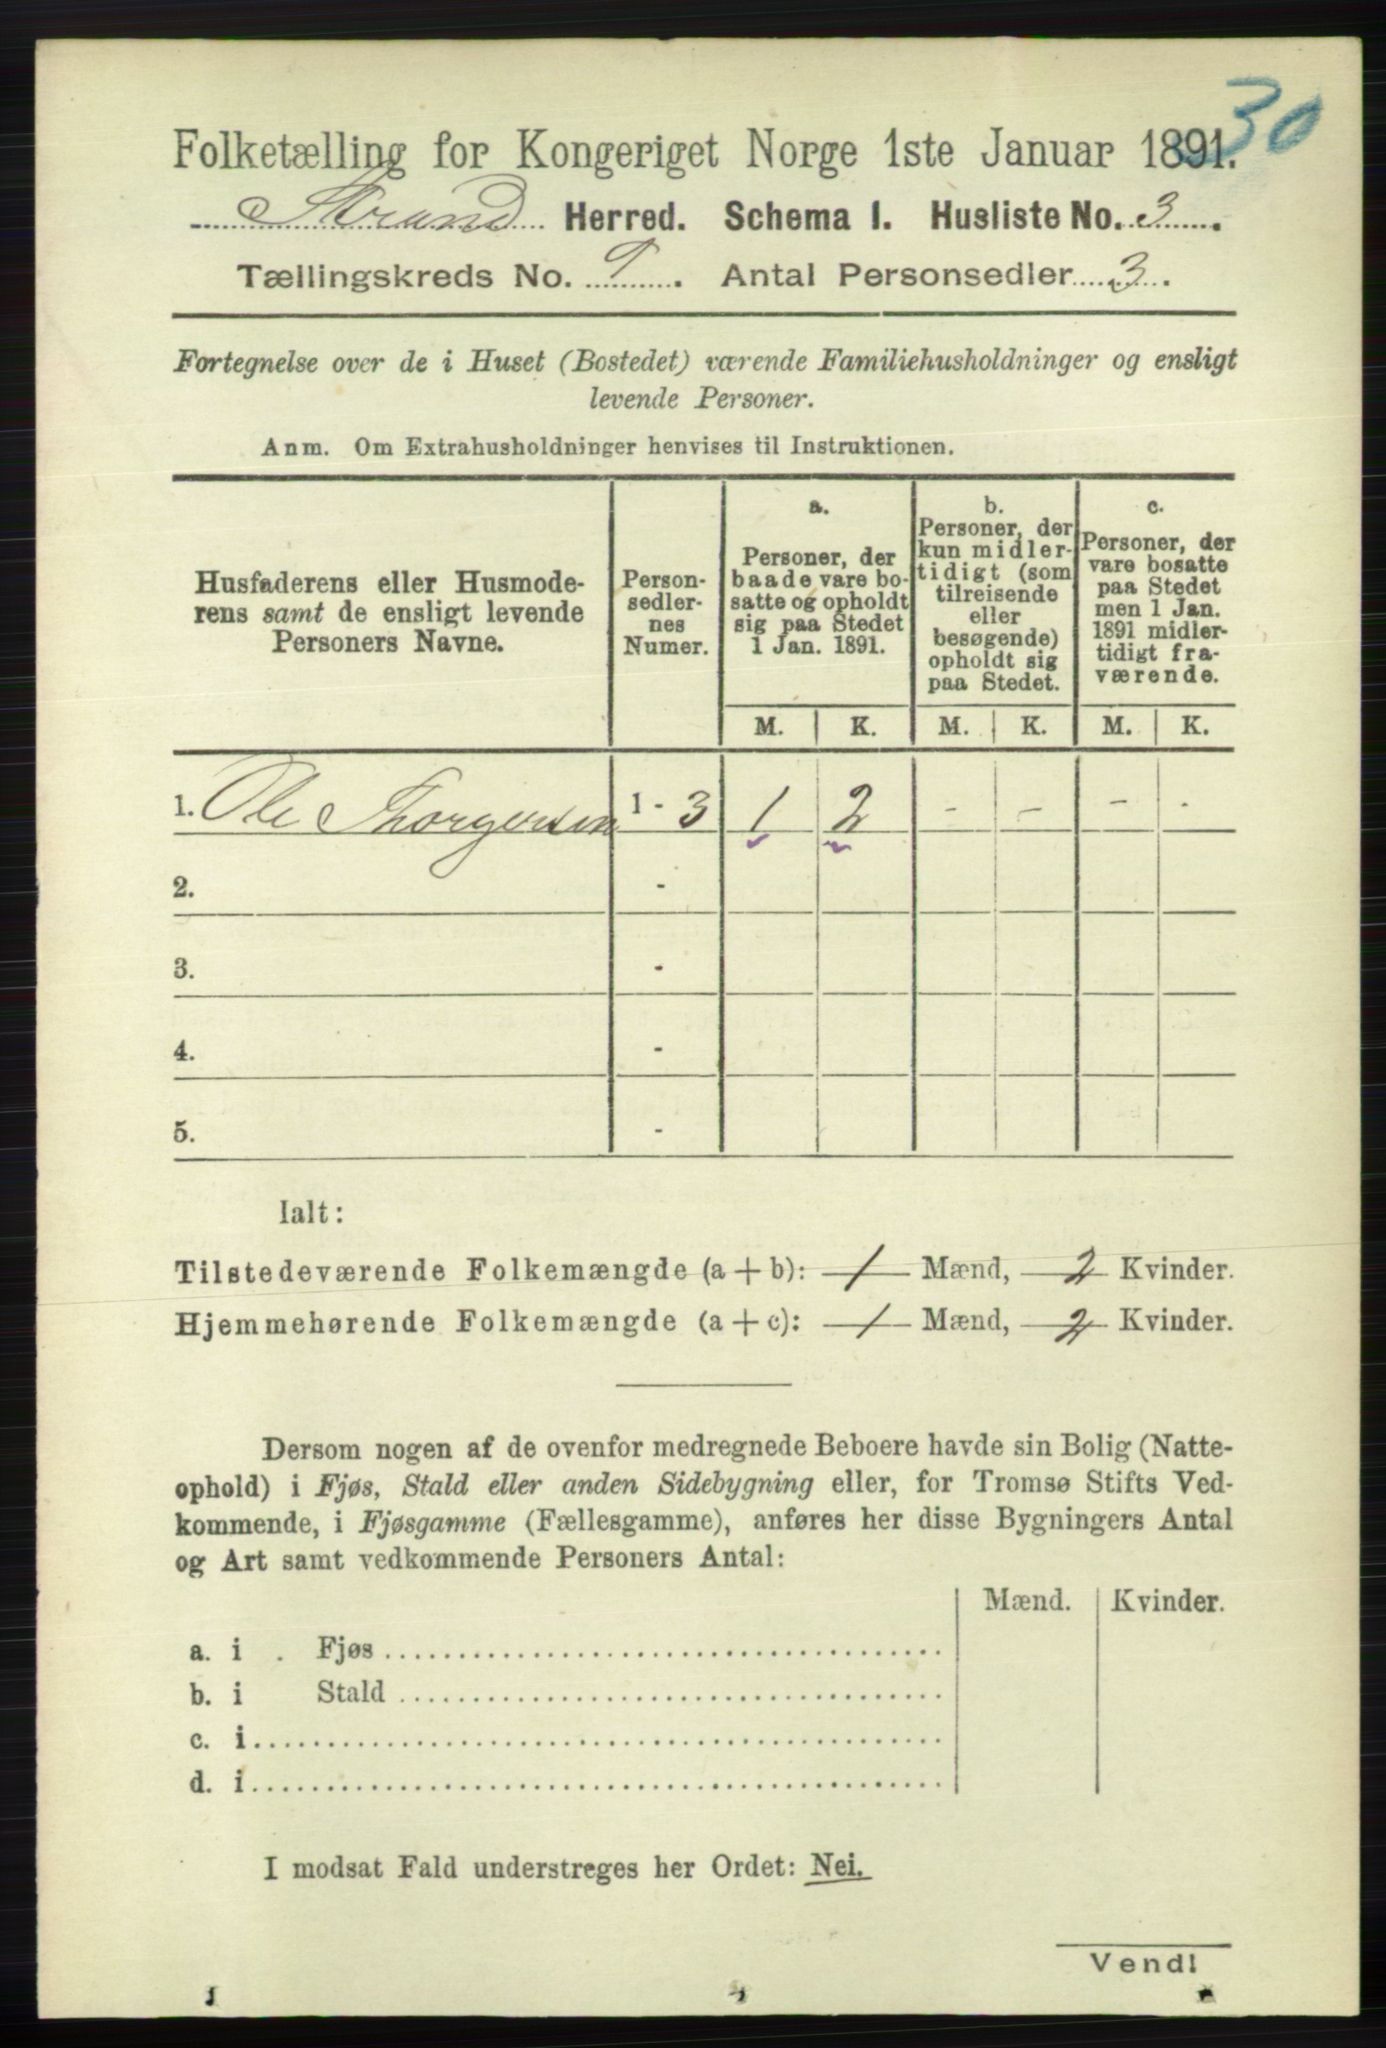 30
Folketælling for Kongeriget Norge 1ste Januar 1891.
Strand Herred. Schema I. Husliste No. 3.
Tællingskreds No. 9. Antal Personsedler 3.
Fortegnelse over de i Huset (Bostedet) værende Familiehusholdninger og ensligt
levende Personer.
Anm. Om Extrahusholdninger henvises til Instruktionen.
Husfaderens eller Husmode-
rens samt de ensligt levende
Personers Navne.
Person-
sedler-
nes
Numer.
a.
Personer, der
baade vare bo-
satte og opholdt
sig paa Stedet
1 Jan. 1891.
b.
Personer, der
kun midler-
tidigt (som
tilreisende
eller
besøgende)
opholdt sig
paa Stedet.
c.
Personer, der
vare bosatte
paa Stedet
men 1 Jan.
1891 midler-
tidigt fra-
værende.
M. K. M. K. M. K.
1. Ole Thorgersen 1 - 3 1 2 - - - -
2. -
3. -
4. -
5. -
Ialt:
Tilstedeværende Folkemængde (a + b): 1 Mænd, 2 Kvinder.
Hjemmehørende Folkemængde (a + c): 1 Mænd, 2 Kvinder.
Dersom nogen af de ovenfor medregnede Beboere havde sin Bolig (Natte-
ophold) i Fjøs, Stald eller anden Sidebygning eller, for Tromsø Stifts Ved-
kommende, i Fjøsgamme (Fællesgamme), anføres her disse Bygningers Antal
og Art samt vedkommende Personers Antal:
Mænd. Kvinder.
a. i . Fjøs
b. i Stald
c. i
d. i
I modsat Fald understreges her Ordet: Nei.
Vend!